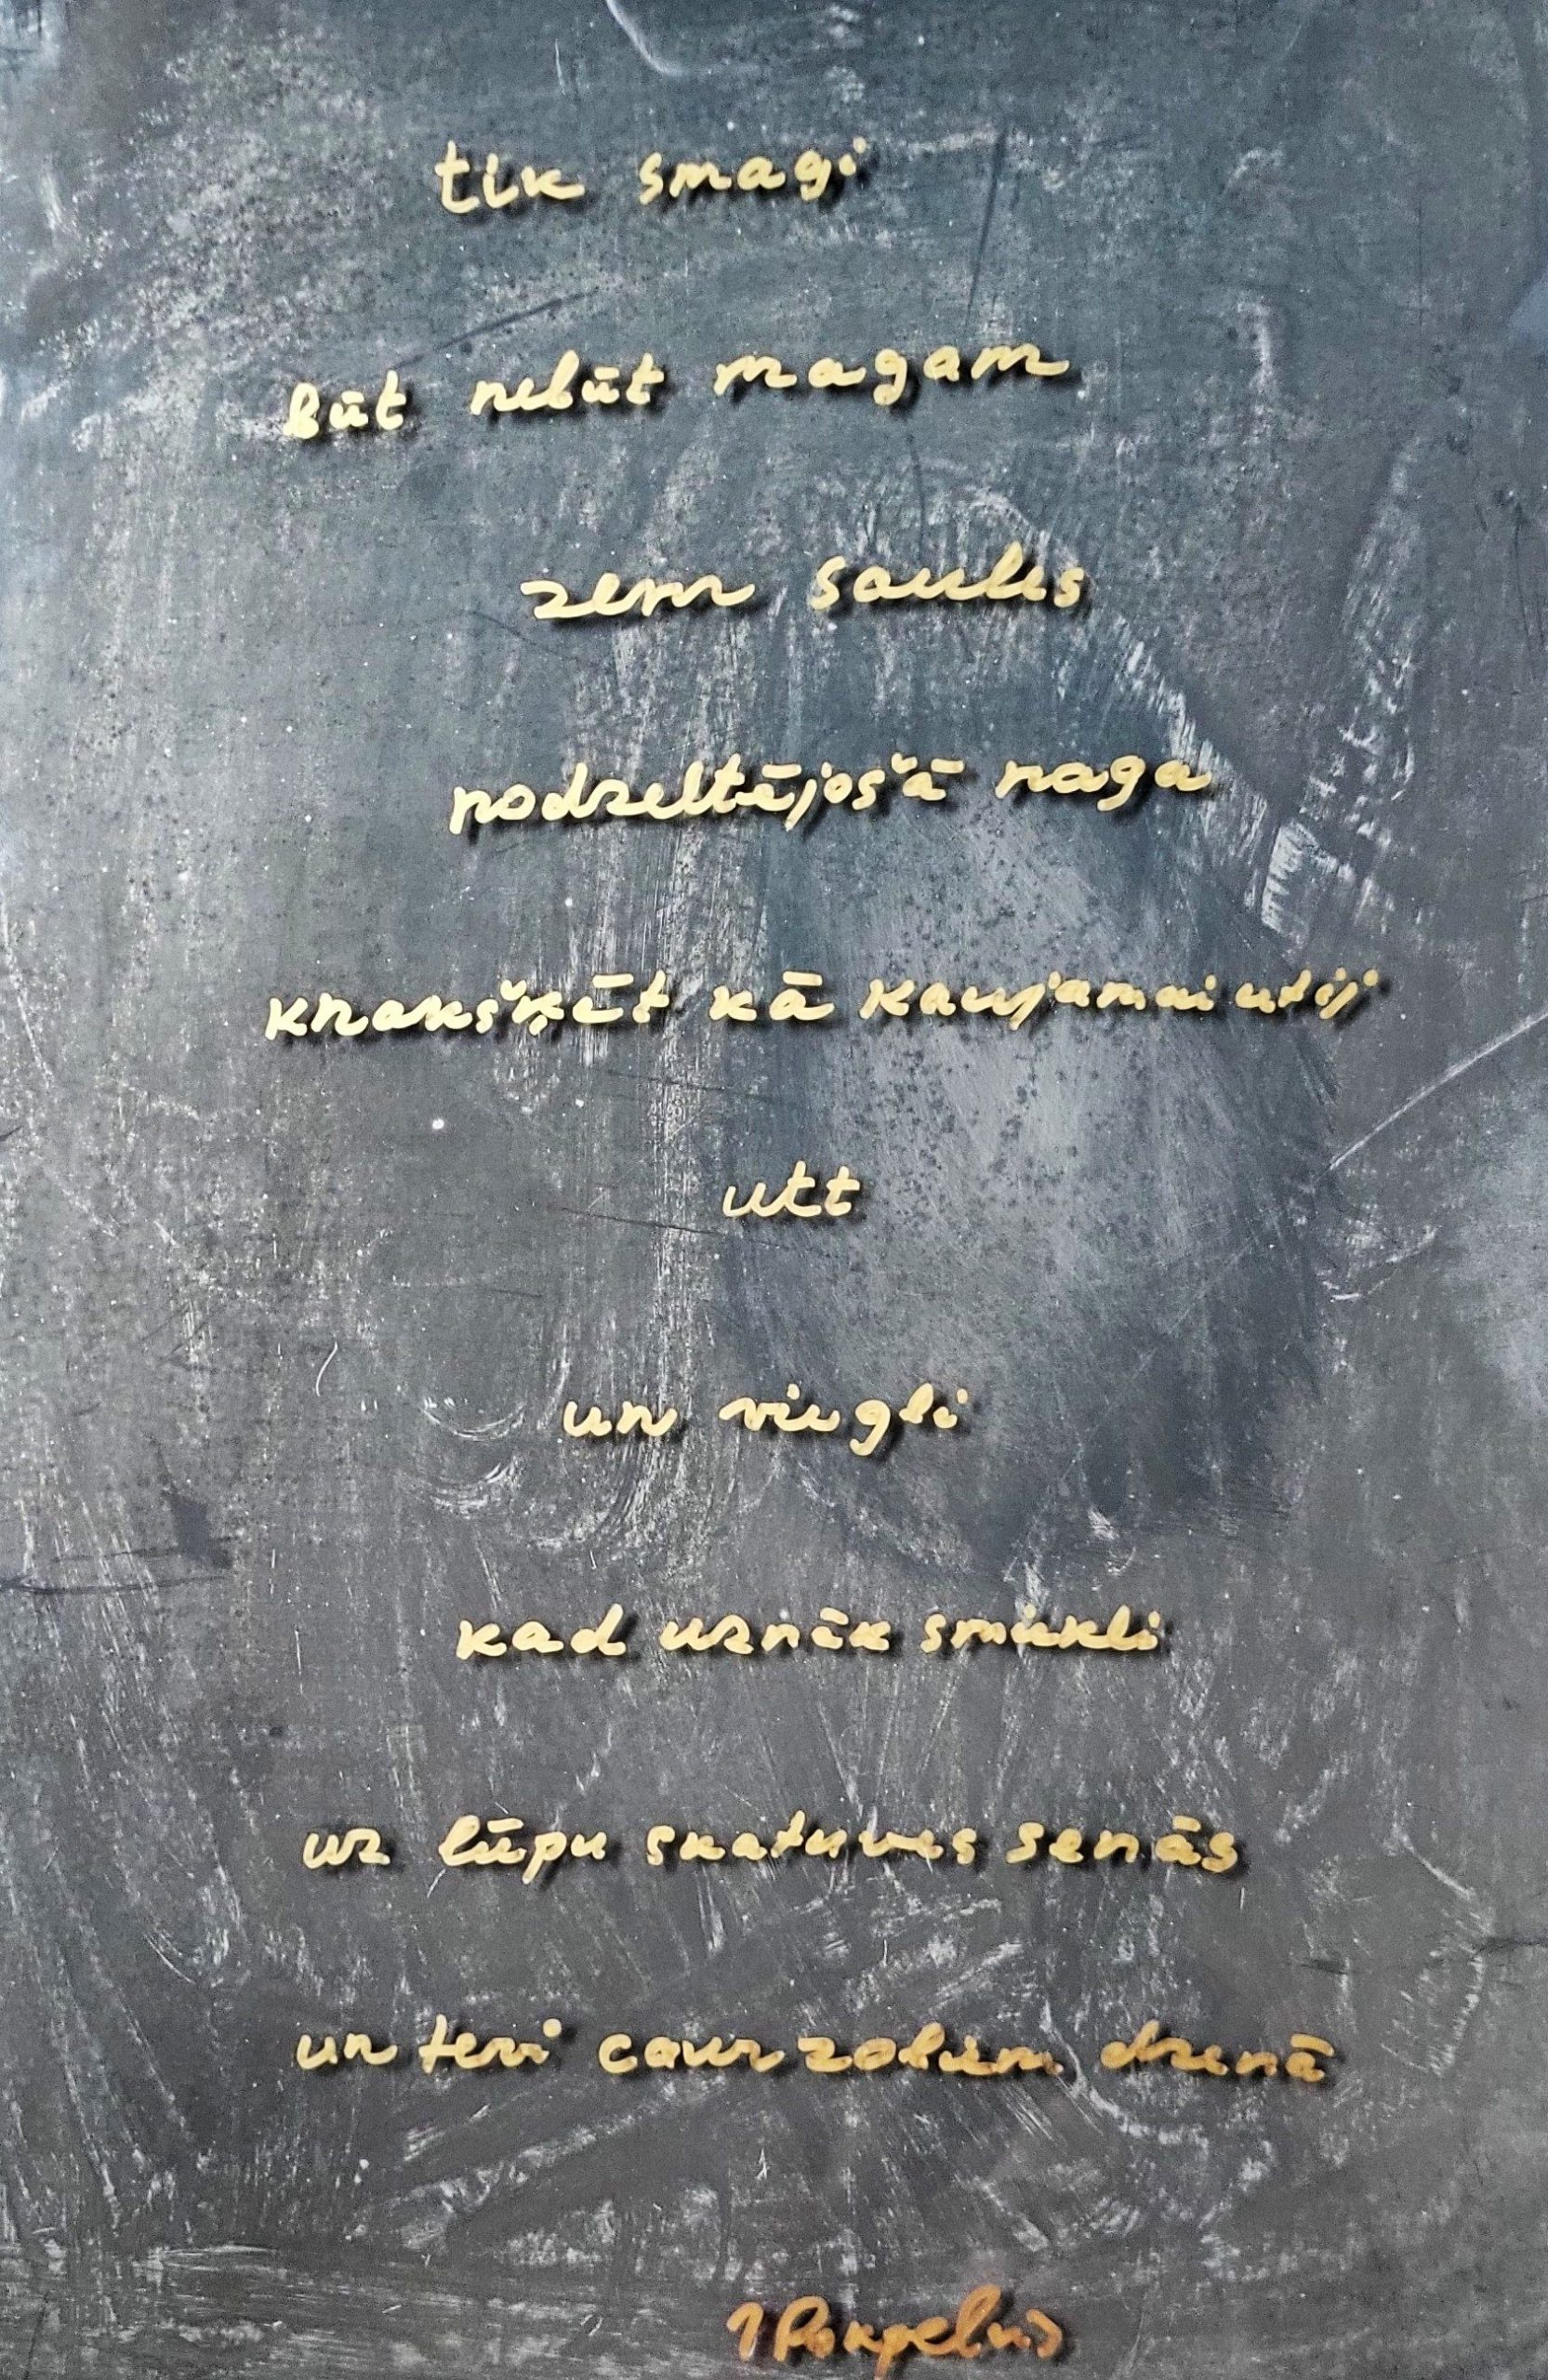 tik smagi
būt nebūt magam
zem saules
nodzeltējošā naga
knakšķēt kā kaujamai utij
utt
un viegli
kad uznāk smiekli
uz lūpu skatuves senās
un tevi caur zobiem dzenā
J Rokpelnis